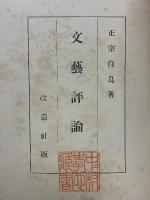 正宗白鳥著
文藝評論
改造社版